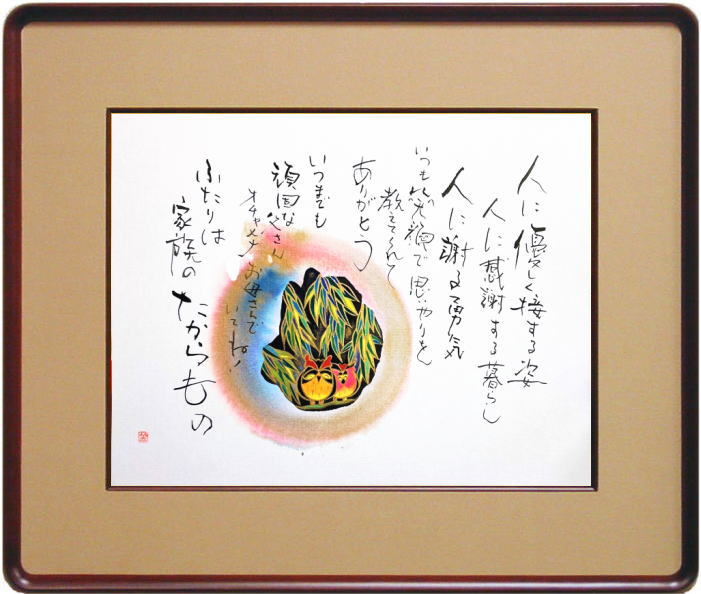 人に優しく接する姿
人に感謝する暮らし
人に謝る勇気
いつも笑顔で思いやりを
教えてくれて
ありがとう
いつまでも
頑固な父さん
オチャメナお母さんで
いてね!
ふたりは
家族の
たからもの